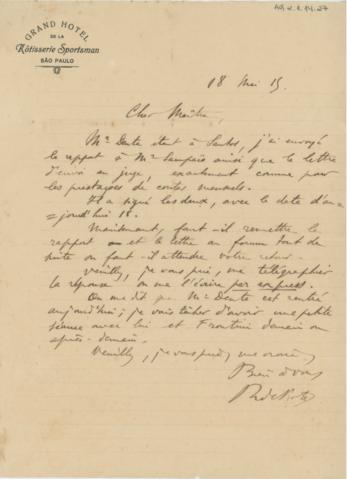 GRAND HOTEL
DE LA
Rôtisserie Sportsman
SÃO PAULO
18 Mai 15
Cher Maître,
Mr Dente étant à Santos, j'ai envoyé
le rapport à Mr Sampaio ainsi que la lettre
d'envoi au juge, exactement comme pour
les prestações de contas mensaes.
Il a signé les deux, avec la date d'au=
=jourd'hui 18.
Maintenant, faut-il remettre le
rapport et la lettre au forum tout de
suite ou faut-il attendre votre retour.
Veuillez, je vous prie, me télégraphier
la réponse ou me l'écrire par express.
On me dit que Mr Dente est rentré
aujourd'hui; je vais tâcher d'avoir une petite
séance avec lui et Frontini demain ou
après-demain.
Veuillez, je vous prie, me croire,
Bien à vous